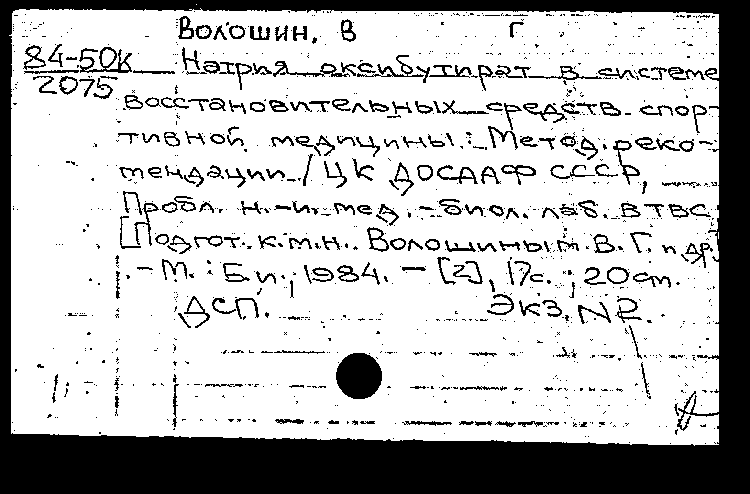 Волошин, В Г
84-50к Натрия оксибутират в системе
2075 восстановительных средств спор-
тивной медицины : Метод. реко-
мендации / ЦК ДОСААФ СССР,
Пробл. н.-и. мед.-биол. лаб. ВТВС
[Подгот. к.м.н. Волошиным В. Г. и др.]
. - М. : Б.и., 1984. - [2], 17с. ; 20см.
ДСП. Экз. N2.